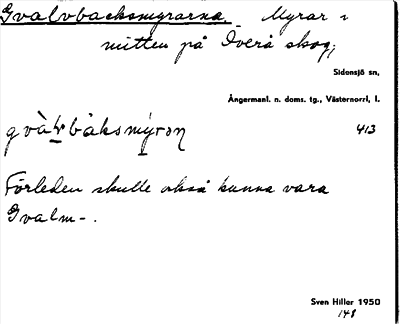 Gvalvbacksmyrarna. Myrar i
mitten på Överå skog,
Sidensjö sn,
Ångermanl. n. doms. tg., Västernorrl. l.
413
Förleden skulle också kunna vara
Gvalm-.
Sven Hiller 1950
148